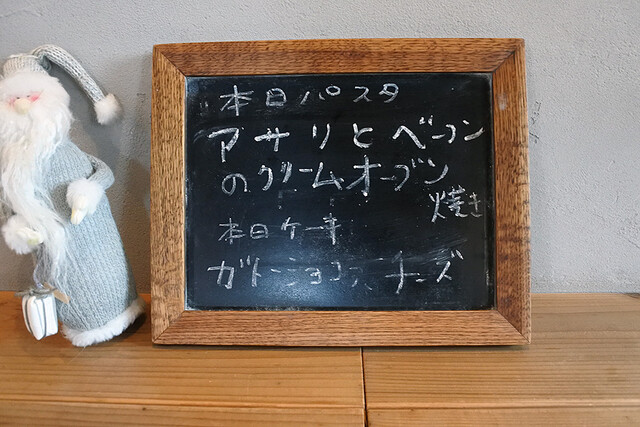 本日パスタ
アサリとベーコン
のクリームオーブン
焼き
本日ケーキ
ガトーショコラ チーズ